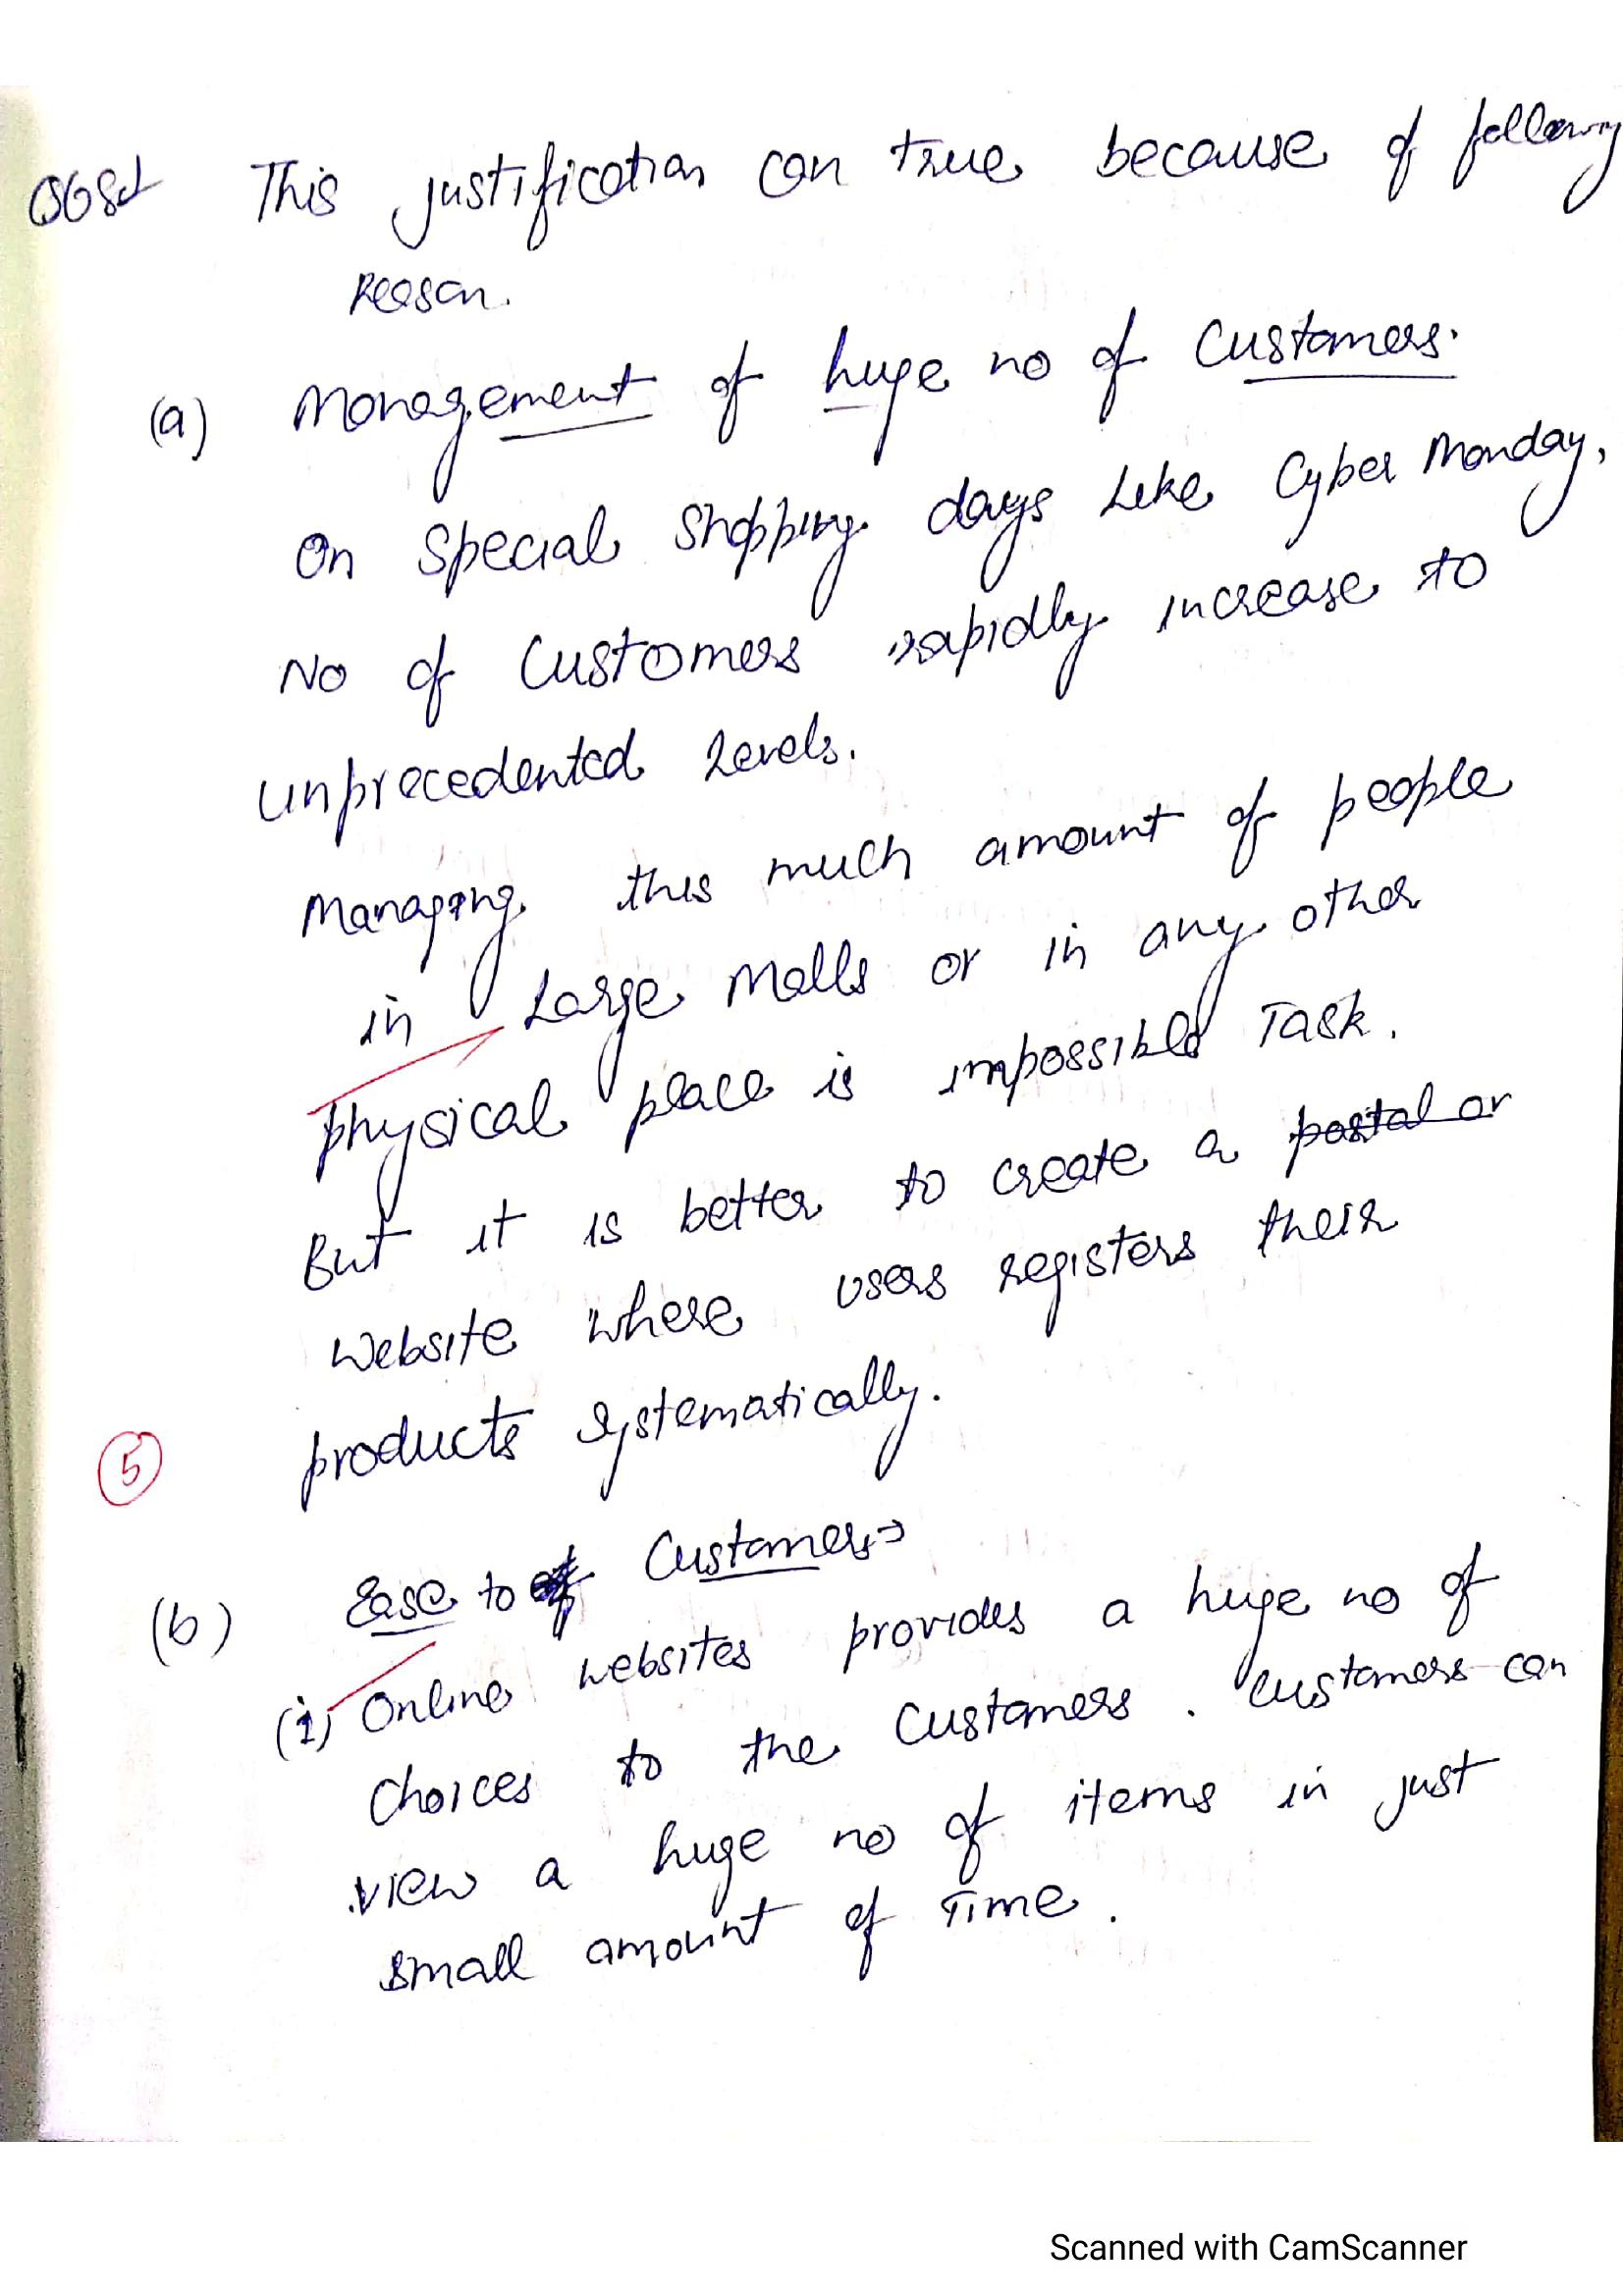 Q6Sol This justification can true because of following
Reason.
(a) Management of huge no of Customers.
On Special Shopping days Like Cyber Monday,
No of Customers rapidly increase to
unprecedented Levels.
Managing this much amount of people
in Large Malls or in any other
physical place is impossible Task.
But it is better to create a postal or
Website where users registers their
products systematically.
5
(b) Ease to Customers⇒
(i) Online websites provides a huge no of
Choices to the Customers. Customers can
view a huge no of items in just
small amount of Time.
Scanned with CamScanner